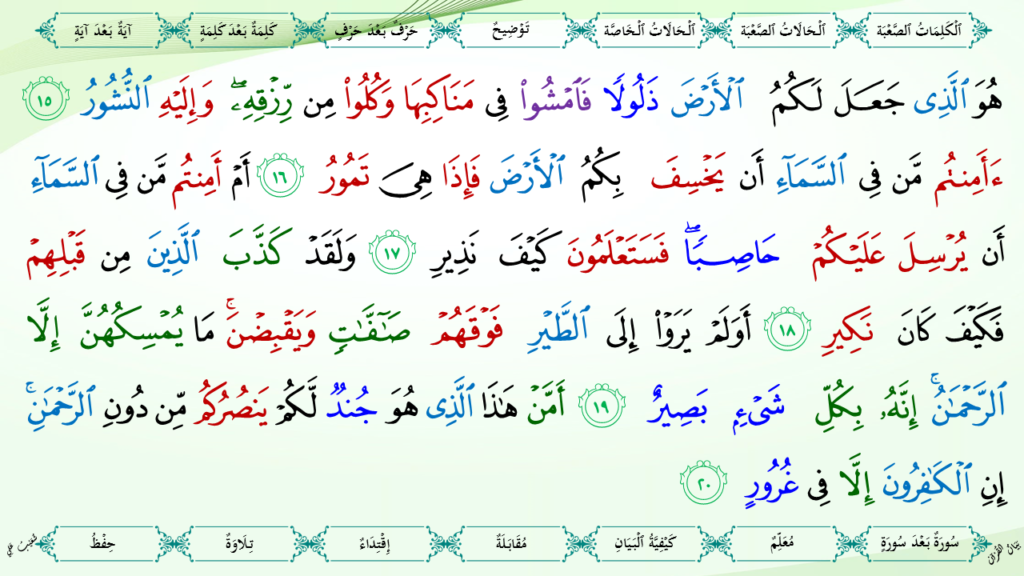 اَلْكَلِمَاتُ الصَّعْبَة اَلْحَالَاتُ الصَّعْبَة اَلْحَالَاتُ الْخَاصَّة تَوْضِيحٌ حَرْفٌ بَعْدَ حَرْفٍ كَلِمَةٌ بَعْدَ كَلِمَةٍ آيَةٌ بَعْدَ آيَةٍ
هُوَ ٱلَّذِى جَعَلَ لَكُمُ ٱلْأَرْضَ ذَلُولًا فَٱمْشُوا۟ فِى مَنَاكِبِهَا وَكُلُوا۟ مِن رِّزْقِهِۦ ۖ وَإِلَيْهِ ٱلنُّشُورُ ١٥
ءَأَمِنتُم مَّن فِى ٱلسَّمَآءِ أَن يَخْسِفَ بِكُمُ ٱلْأَرْضَ فَإِذَا هِىَ تَمُورُ ١٦ أَمْ أَمِنتُم مَّن فِى ٱلسَّمَآءِ
أَن يُرْسِلَ عَلَيْكُمْ حَاصِبًا ۖ فَسَتَعْلَمُونَ كَيْفَ نَذِيرِ ١٧ وَلَقَدْ كَذَّبَ ٱلَّذِينَ مِن قَبْلِهِمْ
فَكَيْفَ كَانَ نَكِيرِ ١٨ أَوَلَمْ يَرَوْا۟ إِلَى ٱلطَّيْرِ فَوْقَهُمْ صَـٰٓفَّـٰتٍ وَيَقْبِضْنَ ۚ مَا يُمْسِكُهُنَّ إِلَّا
ٱلرَّحْمَـٰنُ ۚ إِنَّهُۥ بِكُلِّ شَىْءٍۭ بَصِيرٌ ١٩ أَمَّنْ هَـٰذَا ٱلَّذِى هُوَ جُندٌ لَّكُمْ يَنصُرُكُم مِّن دُونِ ٱلرَّحْمَـٰنِ ۚ
إِنِ ٱلْكَـٰفِرُونَ إِلَّا فِى غُرُورٍ ٢٠
سُورَةٌ بَعْدَ سُورَةٍ مُعَلِّمٌ كَيْفِيَّةُ الْبَيَانِ مُقَابَلَةٌ إِقْتِدَاءٌ تِلَاوَةٌ حِفْظٌ
بَيَانُ الْقُرْآنِ